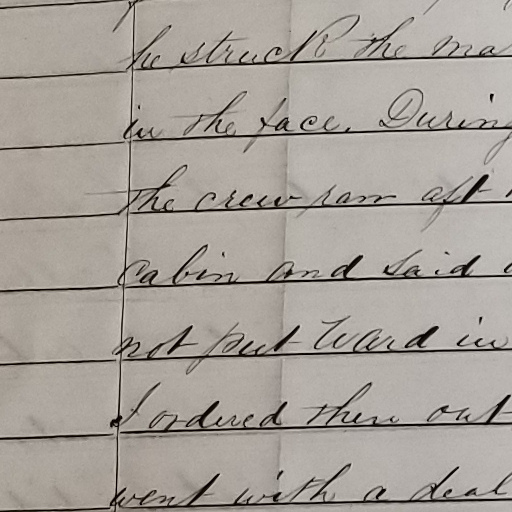 he struck the ma
in the face. During
the crew ran aft
cabin and said
not put Ward in
I ordered them out
went with a deal